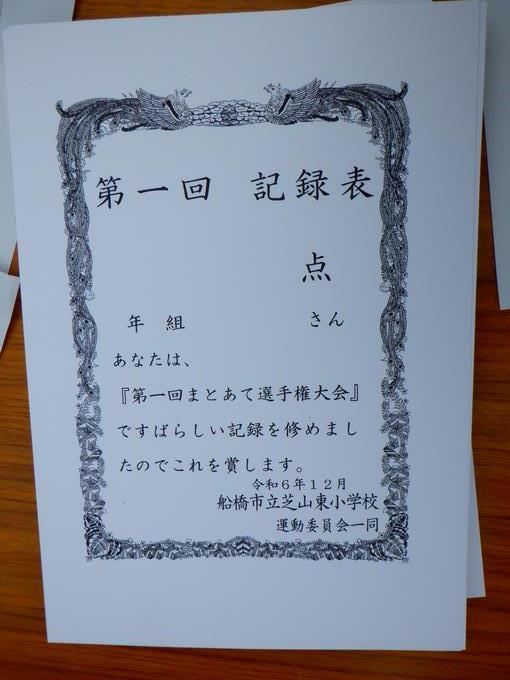 第一回 記録表
点
年 組 さん
あなたは、
『第一回まとあて選手権大会』
ですばらしい記録を修めまし
たのでこれを賞します。
令和6年12月
船橋市立芝山東小学校
運動委員会一同